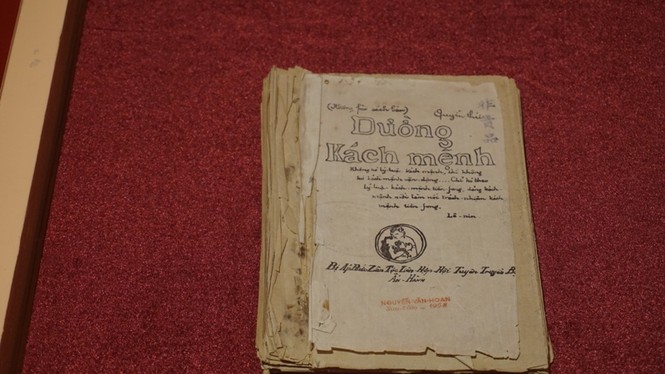 Quyển thứ
Đường
Kách mệnh
Không có lý luận kách mệnh, thì không
có kách mệnh vận động..... Chỉ có theo
lý luận kách mệnh tiền fong, đảng kách
mệnh mới làm nổi trách nhiệm kách
mệnh tiền fong.
Lê-nin.
Bị Áp Bức Zân Tộc Liên Hợp Hội Tuyên Truyền B.
Ấn-Hành
NGUYỄN VĂN HOAN